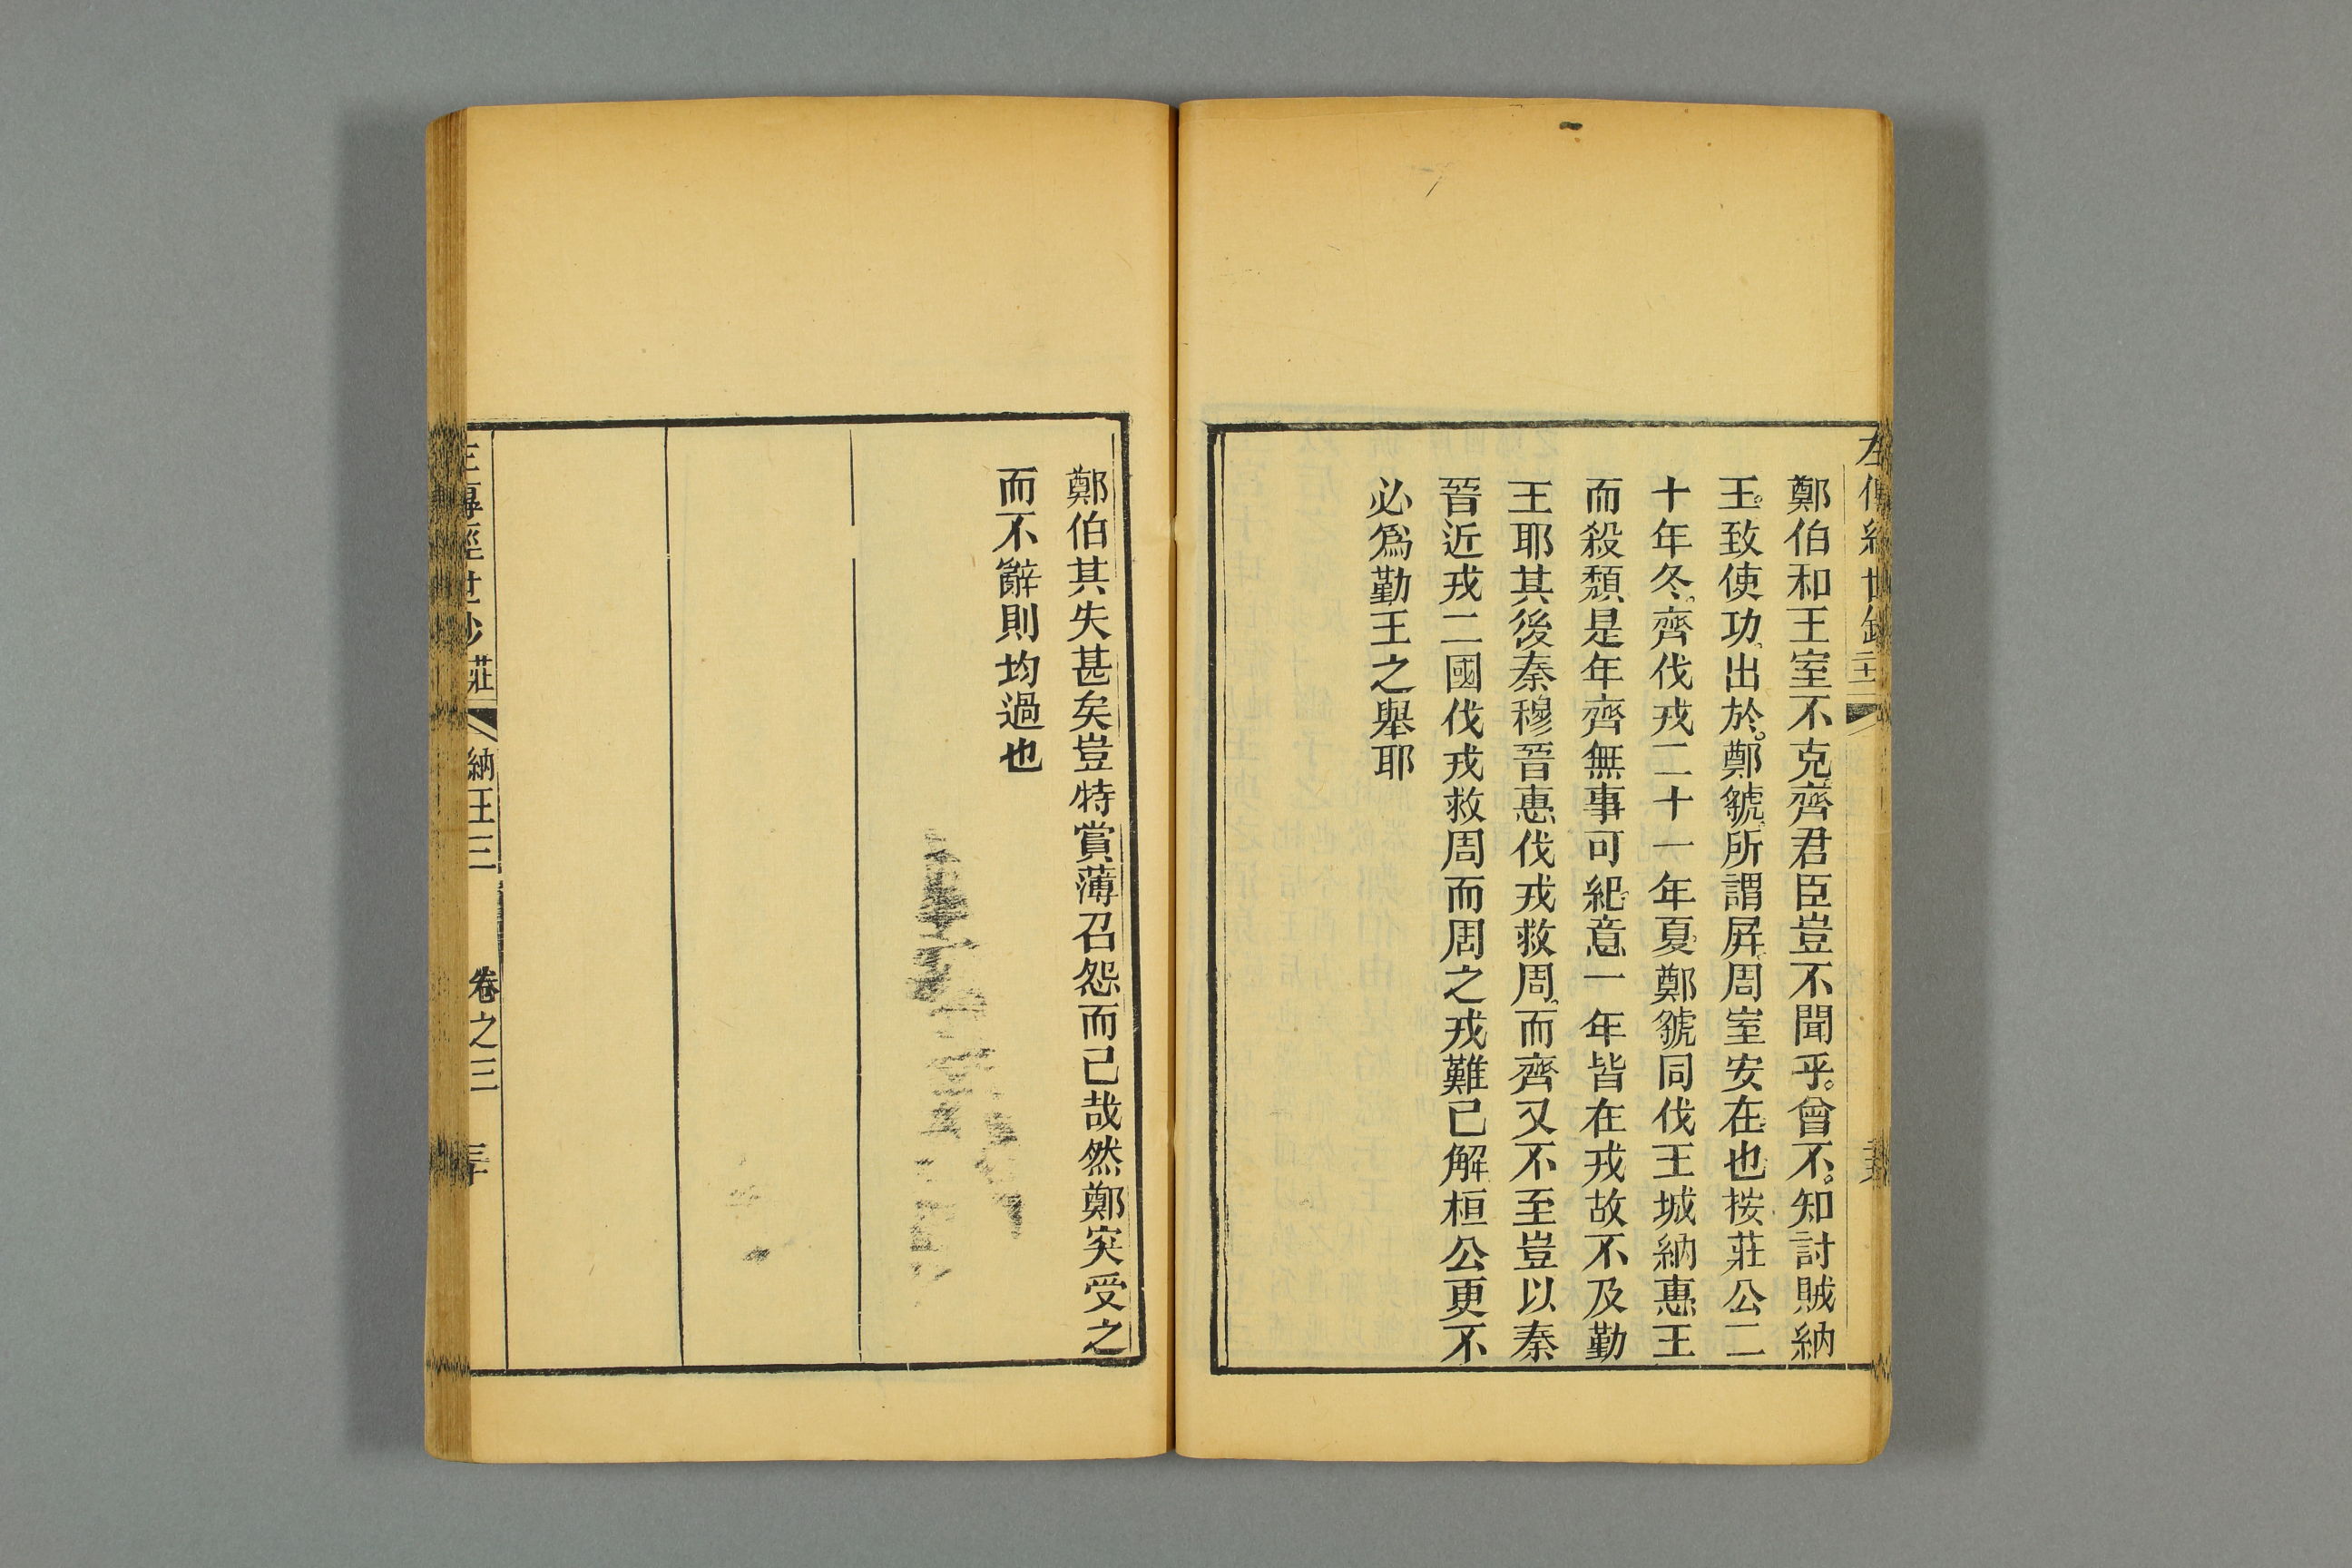 鄭伯和王室不克齊君臣豈不聞乎。曾不。知討賊納
王。致使功、出於。鄭虢、所謂屏周室安在也按莊公二
十年冬、齊伐戎二十一年夏、鄭虢同伐王城納惠王
而殺頹是年齊無事可紀意一年皆在戎故不及勤
王耶其後秦穆晉惠伐戎救周、而齊又不至豈以秦
晉近戎二國伐戎救周而周之戎難已解桓公更不
必爲勤王之舉耶
鄭伯其失甚矣豈特賞薄召怨而已哉然鄭突受之
而不辭則均過也
莊 納王三 卷之三